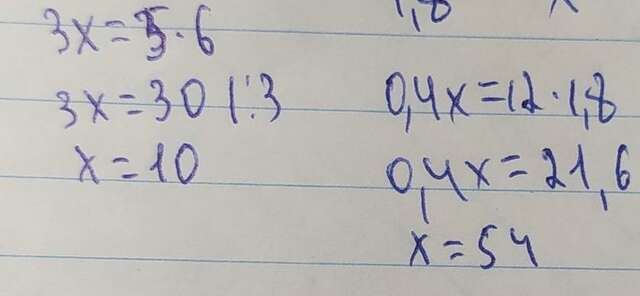 3x=5·6
3x=30 |:3
x=10
1,8 x
0,4x=12·1,8
0,4x=21,6
x=54